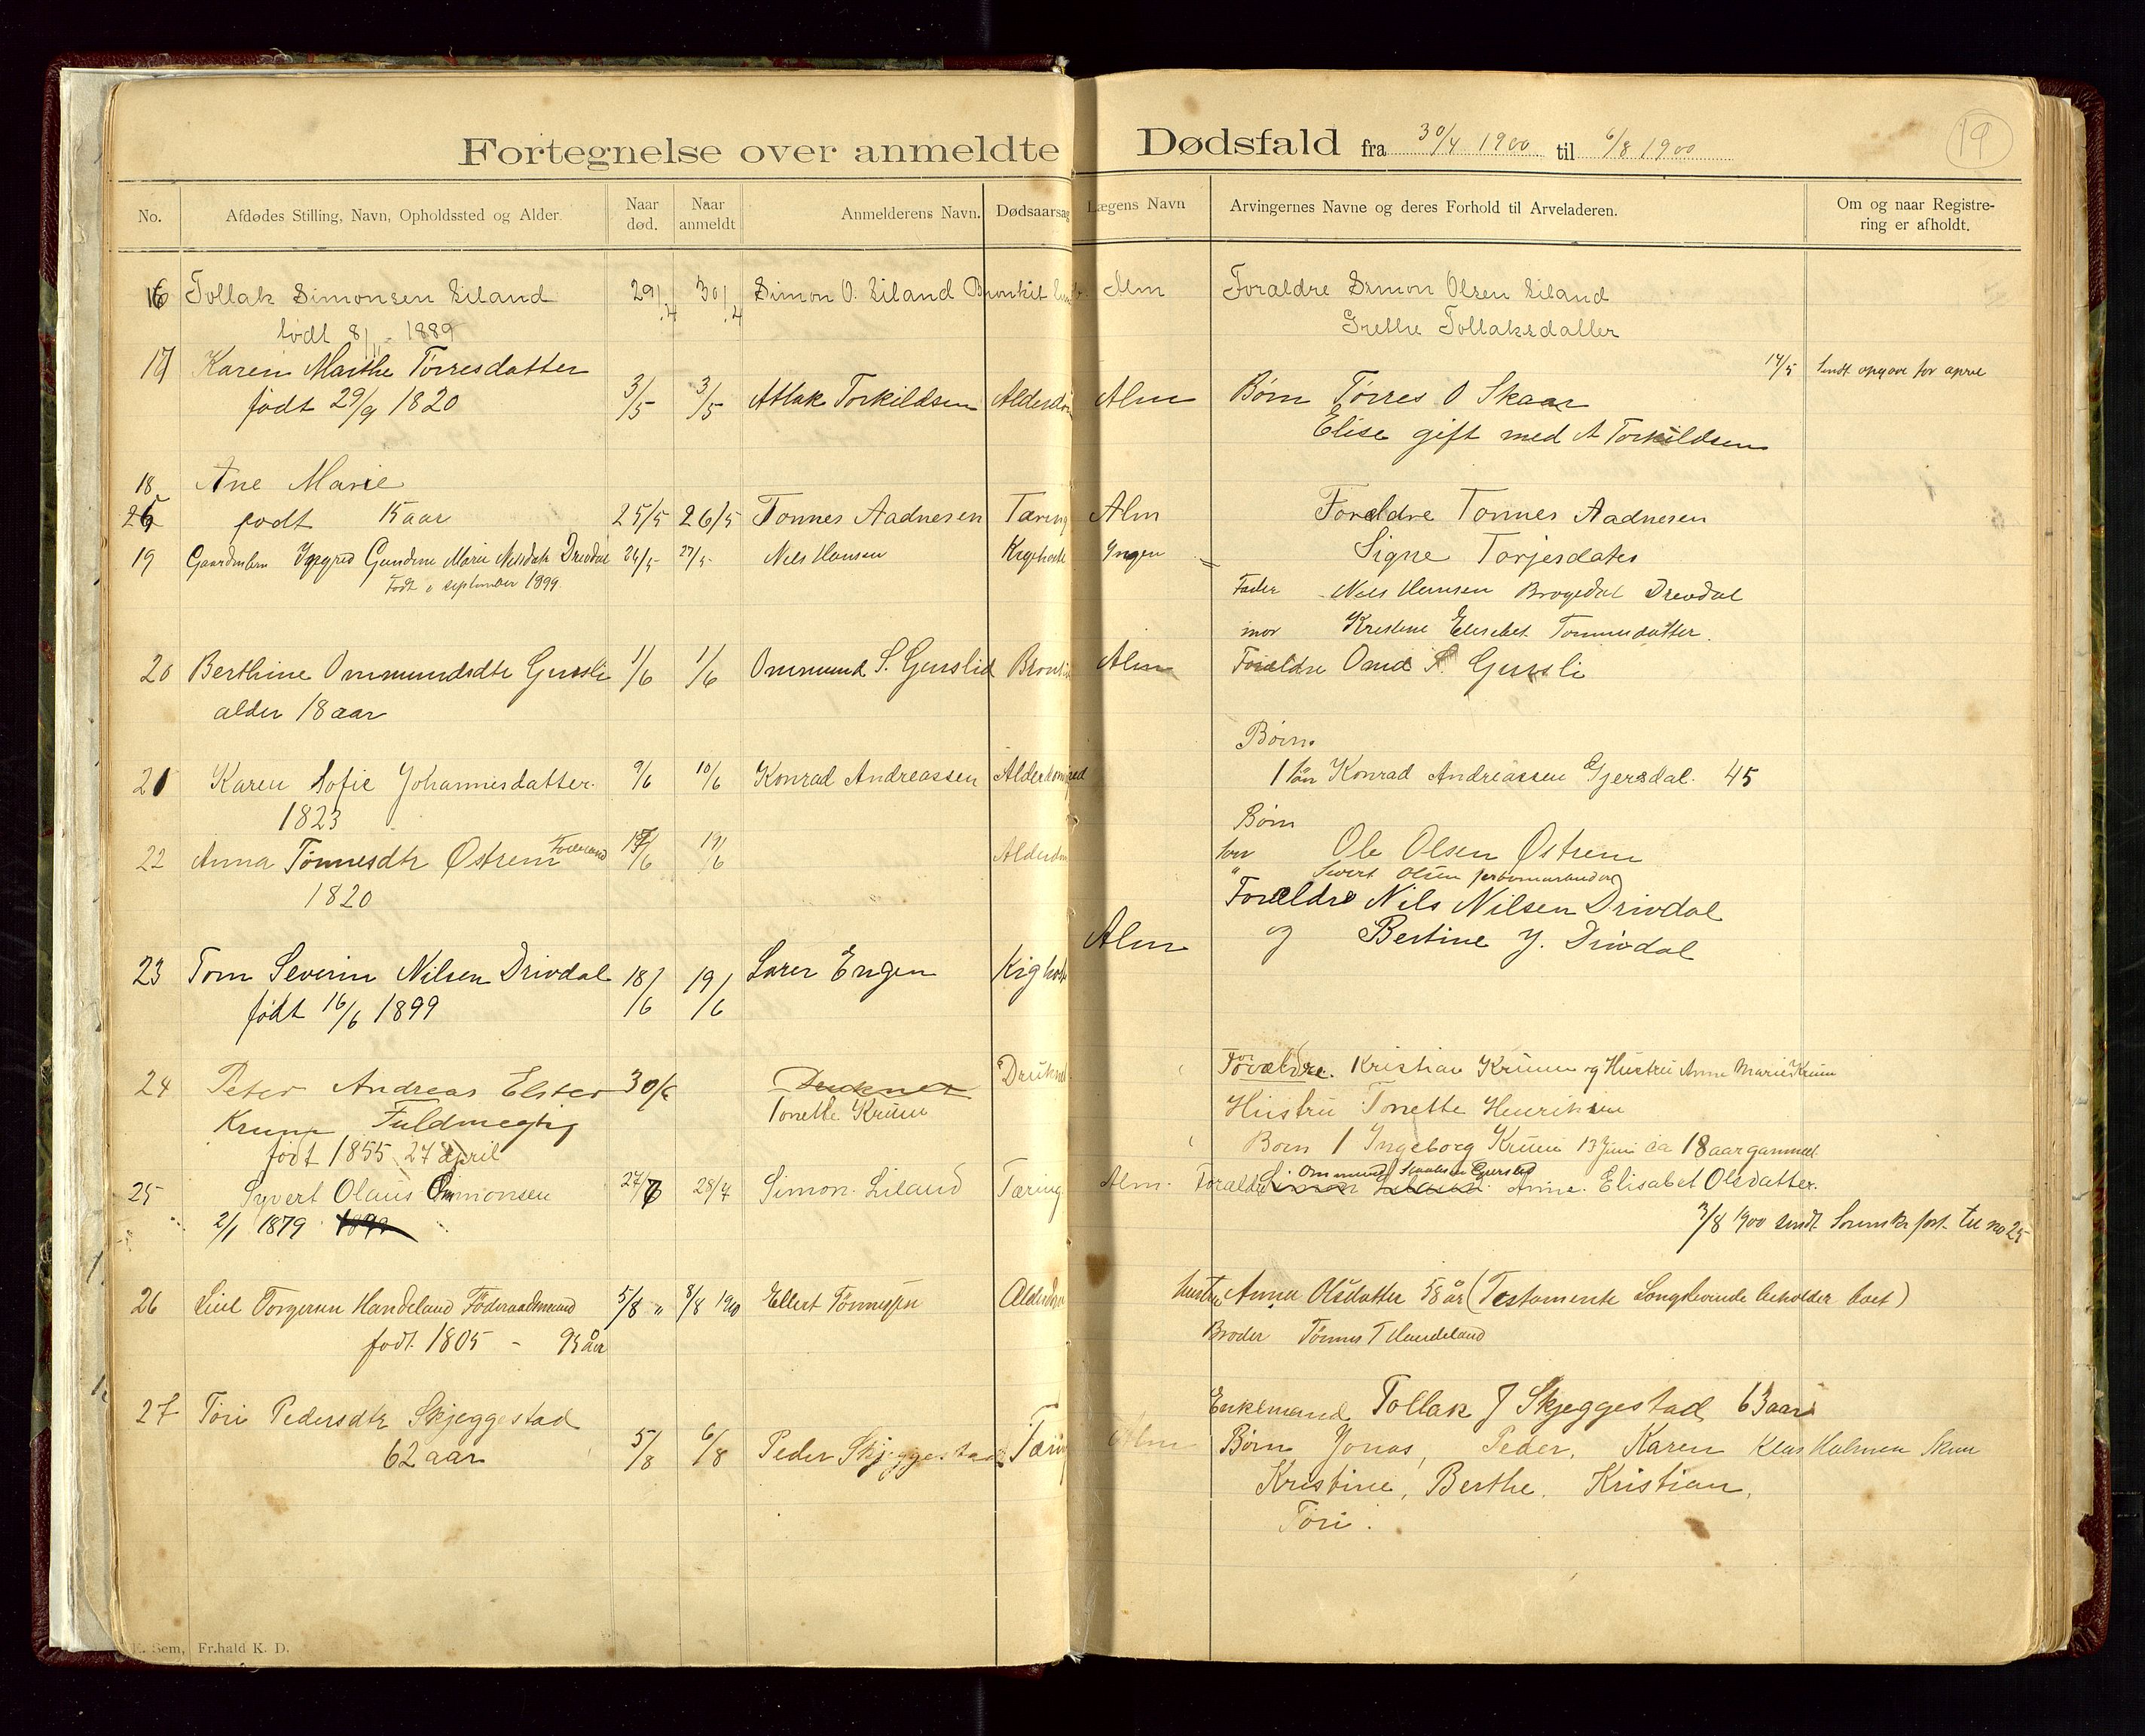 Fortegnelse over anmeldte Dødsfald fra 30/4 1900 til 6/8 1900
19
No. Afdødes Stilling, Navn, Opholdssted og Alder. Naar død. Naar anmeldt Anmelderens Navn. Dødsaarsag Lægens Navn Arvingernes Navne og deres Forhold til Arveladeren. Om og naar Registrering er afholdt.
16 Tollak Simonsen Eiland 29/4 30/4 Simon O. Eiland Bronkit Alm Foraldre Simon Olsen Eiland
født 8/11 - 1889 Grethe Tollaksdatter
17 Karen Marthe Tørresdatter 14/5 Sendt opgave for april
født 29/9 1820 3/5 3/5 Atlak Torkildsen Alderdom Alm Børn Tørres O Skaar
Elise gift med A Torkildsen
18 Ane Marie
født 15 aar 25/5 26/5 Tonnes Aadnesen Tæring Alm Foraldre Tonnes Aadnesen
Signe Torjesdater
19 Ingegred Gundine Marie Nilsdatr Drivdal 26/5 27/5 Nils Hansen Kighoste Ingen
Født september 1899
Fader Nils Hansen Brogedal Drevdal
mor Kristine Elisebet Tonnesdatter.
20 Berthine Ommundsdtr Gursli 1/6 1/6 Ommund S. Gurslid Alm Foraldre Omd S. Gursli
alder 18 aar
Børn.
21 Karen Sofie Johannesdatter. 9/6 10/6 Konrad Andreassen 1 søn Konrad Andreassen Gjersdal. 45
1823
Børn
22 Anna Tønnesdtr Østrem 19/6 Alderdom søn Ole Olsen Østrem
1820
" Sivert Olsen
Foreldre Nils Nilsen Drivdal
Alm og Bertine J. Drivdal
23 Tom Severin Nilsen Drivdal 18/6 19/6 Lærer Engen Kighoste
født 16/6 1899
24 Peter Andreas Elster 30/6 Druknet Forældre. Kristian Krüm og Hustru Anne Marie Krüm
Krum Fuldmegtig Tonette Krüm Hustru Tonette Henriksen
født 1855 27 april Børn 1 Ingeborg Krüm 13 Juni ca 18 aar gammel
25 Syvert Olaus Omonsen 27/7 28/7 Simon Eiland Tæring Alm. Foraldre Ommund Gurslid Anne Elisabet Olsdatter.
2/1 1879
3/8 1900 sendt til no 25
26 Torgersen Handeland Föderaadsmand 5/8 8/8 1900 Ellert Tönnesen Hustru Anna Olsdatter 58 år (Testamente Længstlevende beholder boet)
født. 1805 - 95 år Broder Tönnes T Handeland
27 Tori Pedersdtr Skjeggestad Enkemand Tollak J Skjeggestad 63 aar
62 aar 5/8 6/8 Peder Skjeggestad Tæring Alm Børn Jonas, Peder, Karen
Kristine, Berthe, Kristian,
Tori.
Sem, Fr.hald K. D.